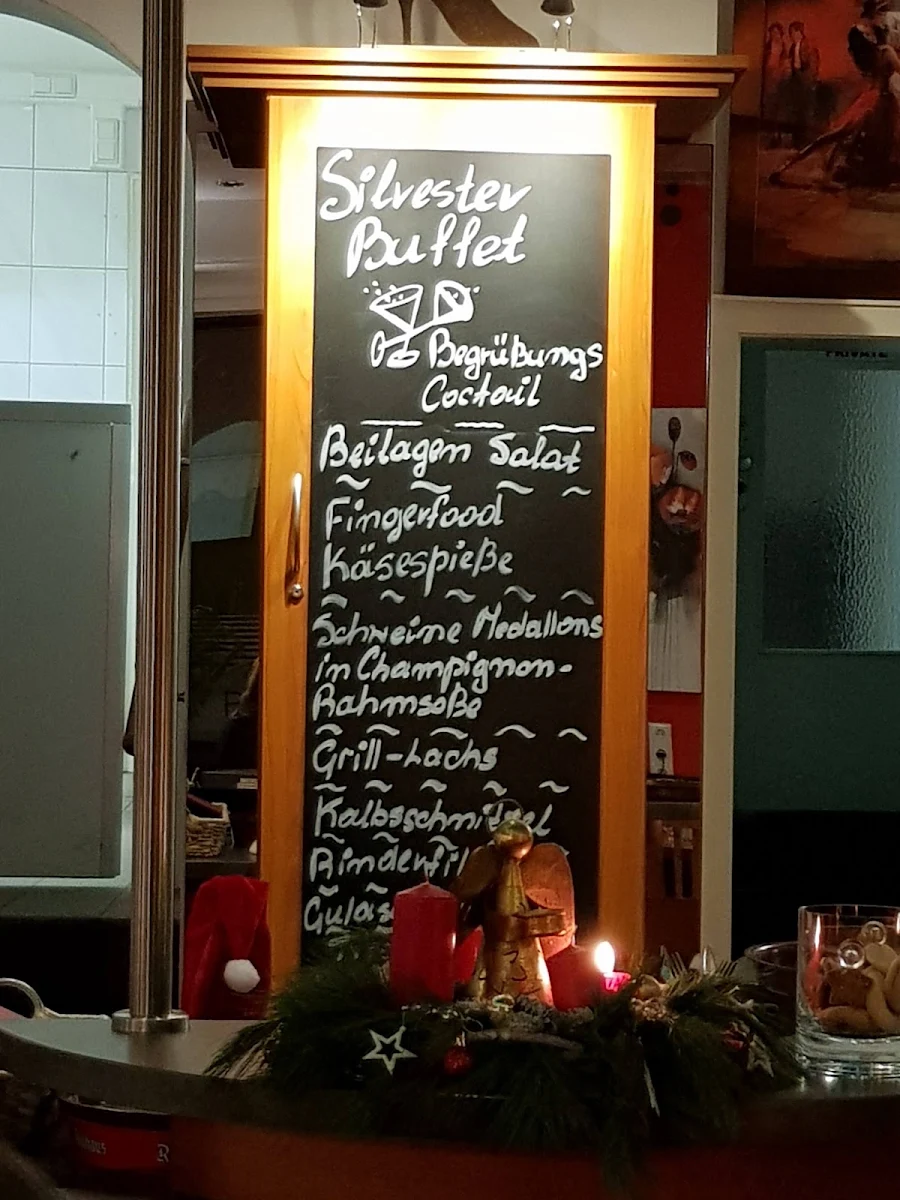 Silvester
Buffet
Begrüßungs
Coctail
Beilagen Salat
Fingerfood
Käsespieße
Schweine Medallons
in Champignon-
Rahmsoße
Grill-Lachs
Kalbsschnitzel
PRIVATE